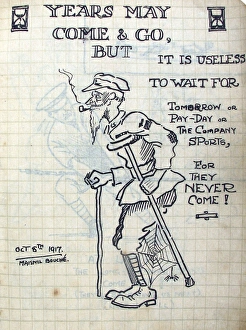 YEARS MAY
COME & GO,
BUT
IT IS USELESS
TO WAIT FOR
TOMORROW OR
PAY-DAY OR
THE COMPANY
SPORTS,
FOR
THEY
NEVER
COME!
OCT 8TH 1917.